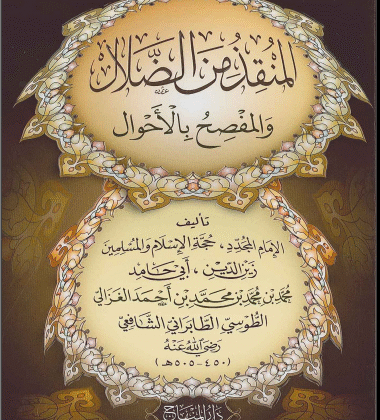 المنقذ من الضلال
والمفصح بالأحوال
تأليف
الإمام المجدد، حجة الإسلام والمسلمين
زين الدين، أبي حامد
محمد بن محمد بن محمد بن أحمد الغزالي
الطوسي الطابراني الشافعي
رضي الله عنه
(٤٥٠-٥٠٥هـ)
دار المنهاج